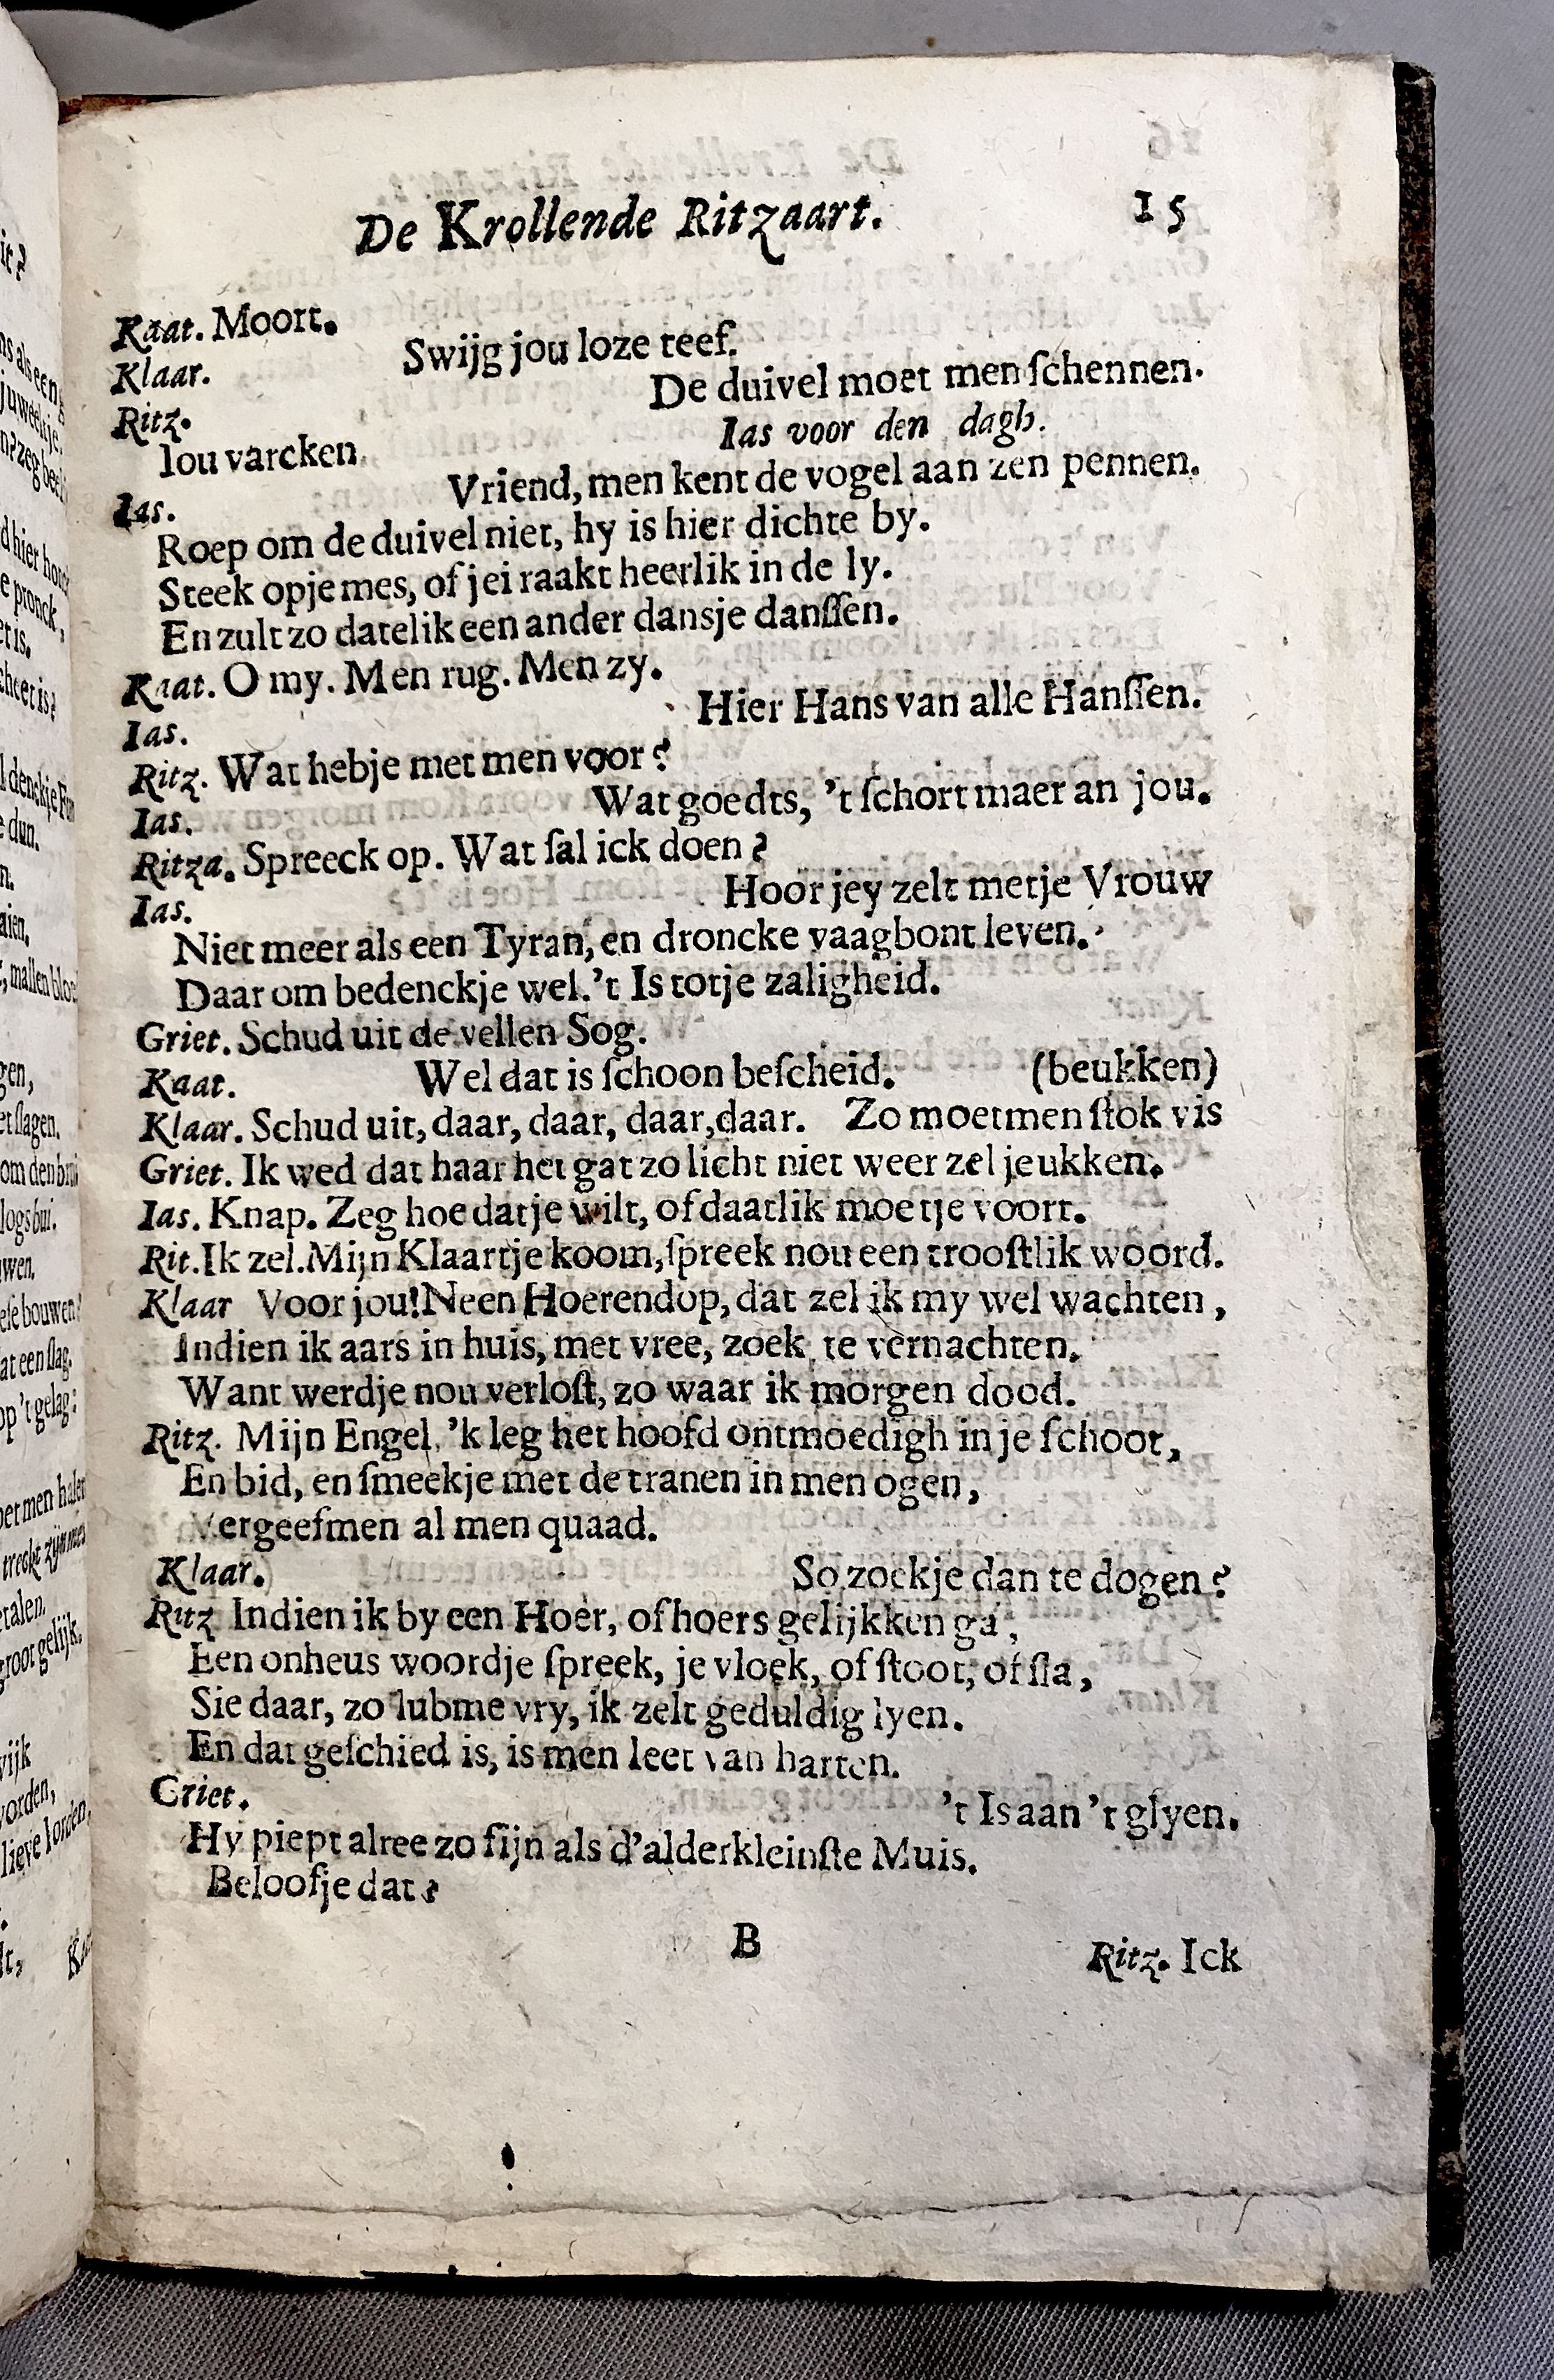 De Krollende Ritzaart. 15
Kaat. Moort.
Klaar. Swijg jou loze teef.
Ritz. De duivel moet men ſchennen.
Ias voor den dagh.
Iou varcken
Ias. Vriend, men kent de vogel aan zen pennen.
Roep om de duivel niet, hy is hier dichte by.
Steek opje mes, of jei raakt heerlik in de ly.
En zult zo datelik een ander dansje danſſen.
Kaat. O my. Men rug. Men zy.
Ias. Hier Hans van alle Hanſſen.
Ritz. Wat hebje met men voor?
Ias. Wat goedts, 't ſchort maer an jou.
Ritza. Spreeck op. Wat ſal ick doen?
Ias. Hoor jey zelt metje Vrouw
Niet meer als een Tyran, en droncke vaagbont leven.
Daar om bedenckje wel. 't Is totje zaligheid.
Griet. Schud uit de vellen Sog.
Kaat. Wel dat is ſchoon beſcheid. (beukken)
Klaar. Schud uit, daar, daar, daar, daar. Zo moetmen ſtok vis
Griet. Ik wed dat haar het gat zo licht niet weer zel jeukken.
Ias. Knap. Zeg hoe datje wilt, of daatlik moetje voort.
Rit. Ik zel. Mijn Klaartje koom, ſpreek nou een trooſtlik woord.
Klaar Voor jou! Neen Hoerendop, dat zel ik my wel wachten,
Indien ik aars in huis, met vree, zoek te vernachten.
Want werdje nou verloſt, zo waar ik morgen dood.
Ritz. Mijn Engel, 'k leg het hoofd ontmoedigh in je ſchoot,
En bid, en ſmeekje met de tranen in men ogen,
Vergeefmen al men quaad.
Klaar. So zoekje dan te dogen?
Ritz Indien ik by een Hoer, of hoers gelijkken ga,
Een onheus woordje ſpreek, je vloek, of ſtoot, of ſla,
Sie daar, zo lubme vry, ik zelt geduldig lyen.
En dat geſchied is, is men leet van harten.
Griet. 't Is aan 't glyen.
Hy piept alree zo fijn als d'alderkleinſte Muis.
Beloofje dat?
B
Ritz. Ick